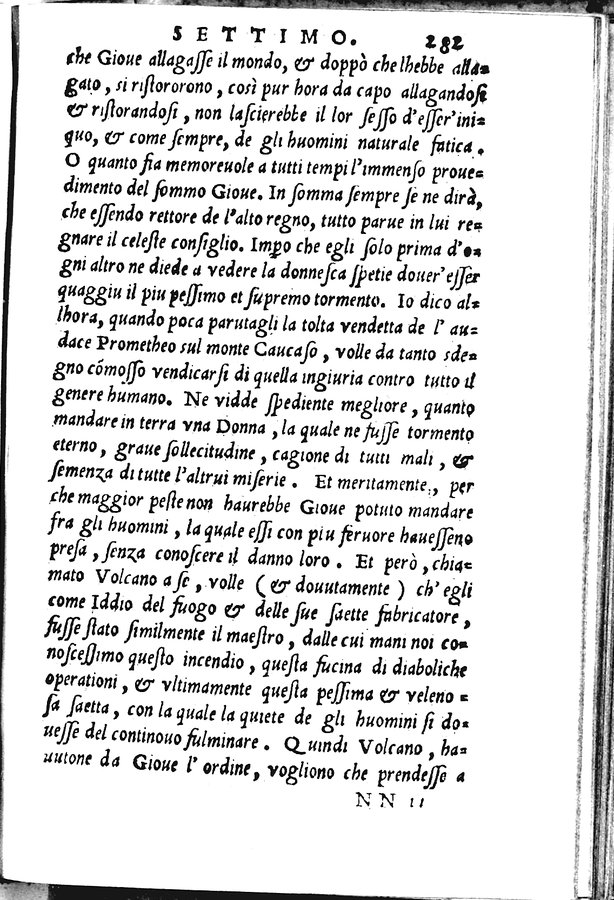 SETTIMO. 282
che Gioue allagaſſe il mondo, & doppò che lhebbe alla-
gato, si riſtororono, così pur hora da capo allagandoſi
& riſtorandoſi, non laſcierebbe il lor ſeſſo d'eſſer'ini-
quo, & come ſempre, de gli huomini naturale fatica.
O quanto fia memoreuole a tutti tempi l'immenſo proue-
dimento del ſommo Gioue. In ſomma ſempre ſe ne dirà,
che eſſendo rettore de l'alto regno, tutto parue in lui re-
gnare il celeſte conſiglio. Impo che egli ſolo prima d'o-
gni altro ne diede a vedere la donneſca ſpetie douer'eſſer
quaggiu il piu peſſimo et ſupremo tormento. Io dico al-
lhora, quando poca parutagli la tolta vendetta de l'au-
dace Prometheo sul monte Caucaſo, volle da tanto sde-
gno cõmoſſo vendicarſi di quella ingiuria contro tutto il
genere humano. Ne vidde ſpediente megliore, quanto
mandare in terra vna Donna, la quale ne fuſſe tormento
eterno, graue ſollecitudine, cagione di tutti mali, &
ſemenza di tutte l'altrui miſerie. Et meritamente, per
che maggior peſte non haurebbe Gioue potuto mandare
fra gli huomini, la quale eſſi con piu feruore haueſſeno
preſa, ſenza conoſcere il danno loro. Et però, chia-
mato Volcano a ſe, volle (& douutamente) ch'egli
come Iddio del fuogo & delle ſue ſaette fabricatore,
fuſſe ſtato ſimilmente il maeſtro, dalle cui mani noi co-
noſceſſimo queſto incendio, queſta fucina di diaboliche
operationi, & vltimamente queſta peſſima & veleno-
ſa ſaetta, con la quale la quiete de gli huomini ſi do-
ueſſe del continouo fulminare. Quindi Volcano, ha-
uutone da Gioue l'ordine, vogliono che prendeſſe a
NN ii